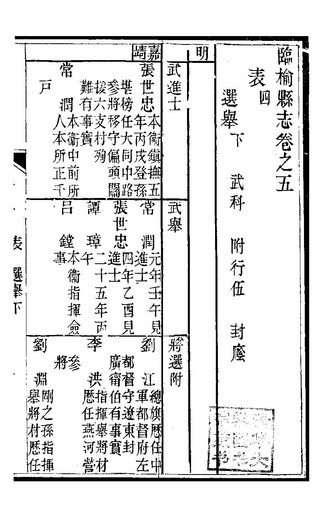 臨榆縣志卷之五
表四
選舉下 武科 附行伍 封廕
明
武進士
武舉
將選附
嘉靖
張世忠 本衛鎮撫五
年丙戌登孫
堪榜任大同中路
參將移守偏頭關
援六支村殉
難有事實
常潤 本衛中前所
人本所正千
戶
常潤 元年壬午見
進士
張世忠 四年乙酉見
進士
譚璋 二十五年丙
午
呂鏜 本衛指揮僉
事
劉江 總旗歷任中
軍都督府左
都督守遼東封
廣甯伯有事實
李洪 指揮舉將材
歷任燕河營
參
將
劉淵 剛之孫指揮
舉將材歷任
表 選舉下